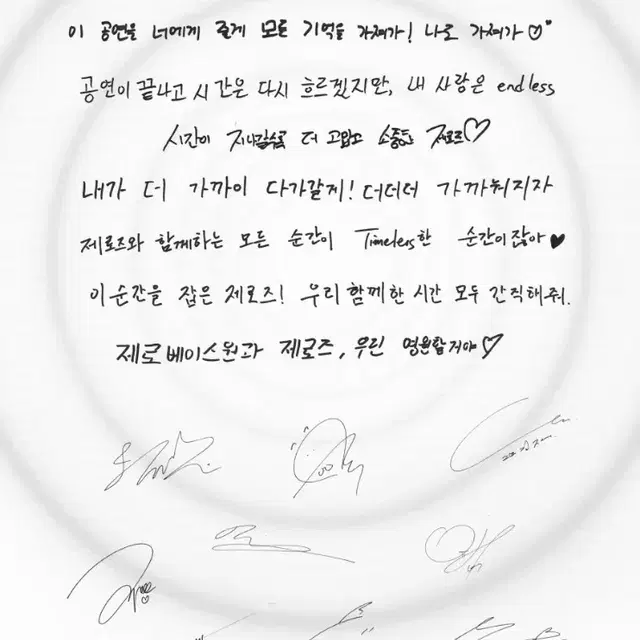 이 공연을 너에게 줄게 모든 기억을 가져가! 나로 가져가♡
공연이 끝나고 시간은 다시 흐르겠지만, 내 사랑은 endless
시간이 지나갈수록 더 고맙고 소중한 제로즈♡
내가 더 가까이 다가갈게! 더더더 가까워지자
제로즈와 함께하는 모든 순간이 Timeless한 순간이잖아♥
이 순간을 잡은 제로즈! 우리 함께한 시간 모두 간직해줘.
제로베이스원과 제로즈, 우린 영원할거야♡